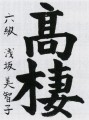 高棲
六級 浅坂美智子